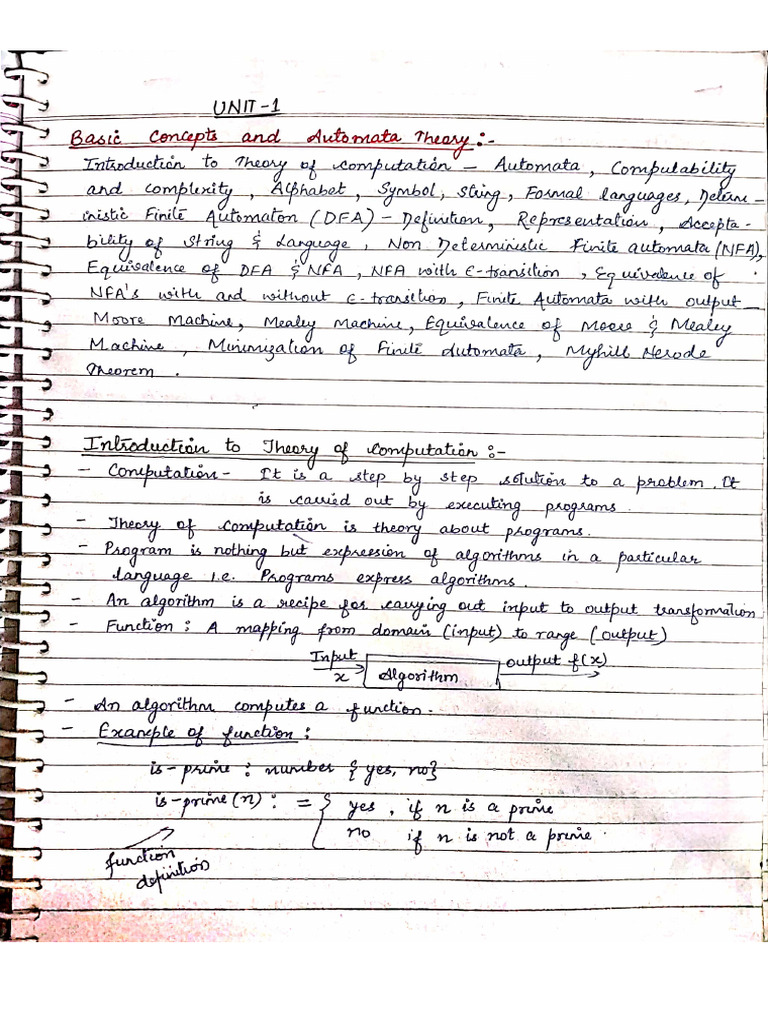 UNIT-1
Basic Concepts and Automata Theory :-
Introduction to Theory of Computation – Automata, Computability
and complexity, Alphabet, Symbol, String, Formal languages, Determi-
nistic Finite Automaton (DFA) – Definition, Representation, Accepta-
bility of String & Language, Non Deterministic Finite automata (NFA),
Equivalence of DFA & NFA, NFA with ϵ-transition, Equivalence of
NFA's with and without ϵ-transition, Finite Automata with output –
Moore Machine, Mealey Machine, Equivalence of Moore & Mealey
Machine, Minimization of Finite Automata, Myhill Nerode
Theorem.
Introduction to Theory of Computation :-
- Computation - It is a step by step solution to a problem. It
is carried out by executing programs.
- Theory of computation is theory about programs.
- Program is nothing but expression of algorithms in a particular
language i.e. Programs express algorithms.
- An algorithm is a recipe for carrying out input to output transformation
- Function : A mapping from domain (input) to range (output)
Input x Algorithm output f(x)
- An algorithm computes a function.
- Example of function :
is-prime : number {yes, no}
is-prime(n) : = { yes, if n is a prime
no if n is not a prime.
function
definition